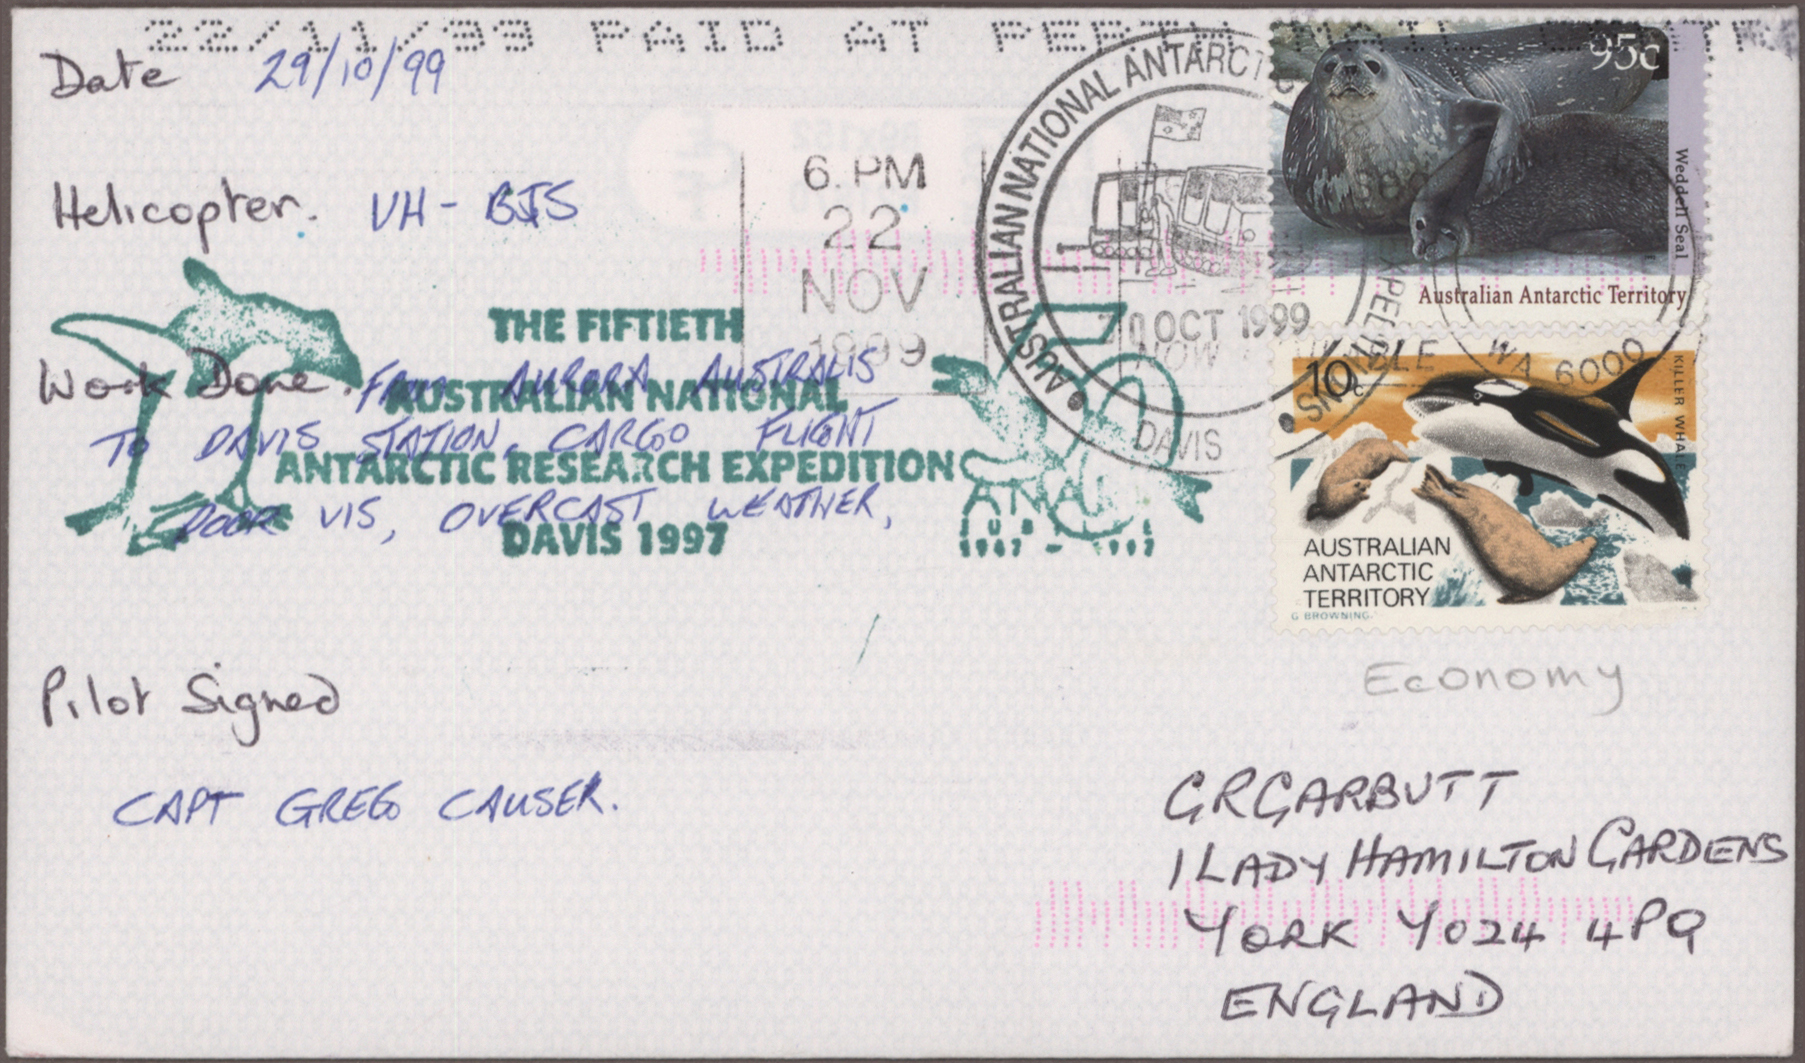 22/11/99 PAID AT PERTH MAIL
Date 29/10/99
Helicopter. VH-BJS
6. PM
22
NOV
1999
AUSTRALIAN NATIONAL ANTARCTIC
EXPEDITION
DAVIS
OCT 1999
NOW
WA 6000
DAVIS
95c
Weddell Seal
Australian Antarctic Territory
10c
KILLER WHALE
AUSTRALIAN
ANTARCTIC
TERRITORY
G BROWNING.
THE FIFTIETH
AUSTRALIAN NATIONAL
ANTARCTIC RESEARCH EXPEDITION
DAVIS 1997
50
1947 - 1997
Work Done. FROM AURORA AUSTRALIS
TO DAVIS STATION, CARGO FLIGHT
POOR VIS, OVERCAST WEATHER,
Pilot Signed
CAPT GREG CAUSER.
Economy
G R GARBUTT
1 LADY HAMILTON GARDENS
YORK YO24 4PQ
ENGLAND